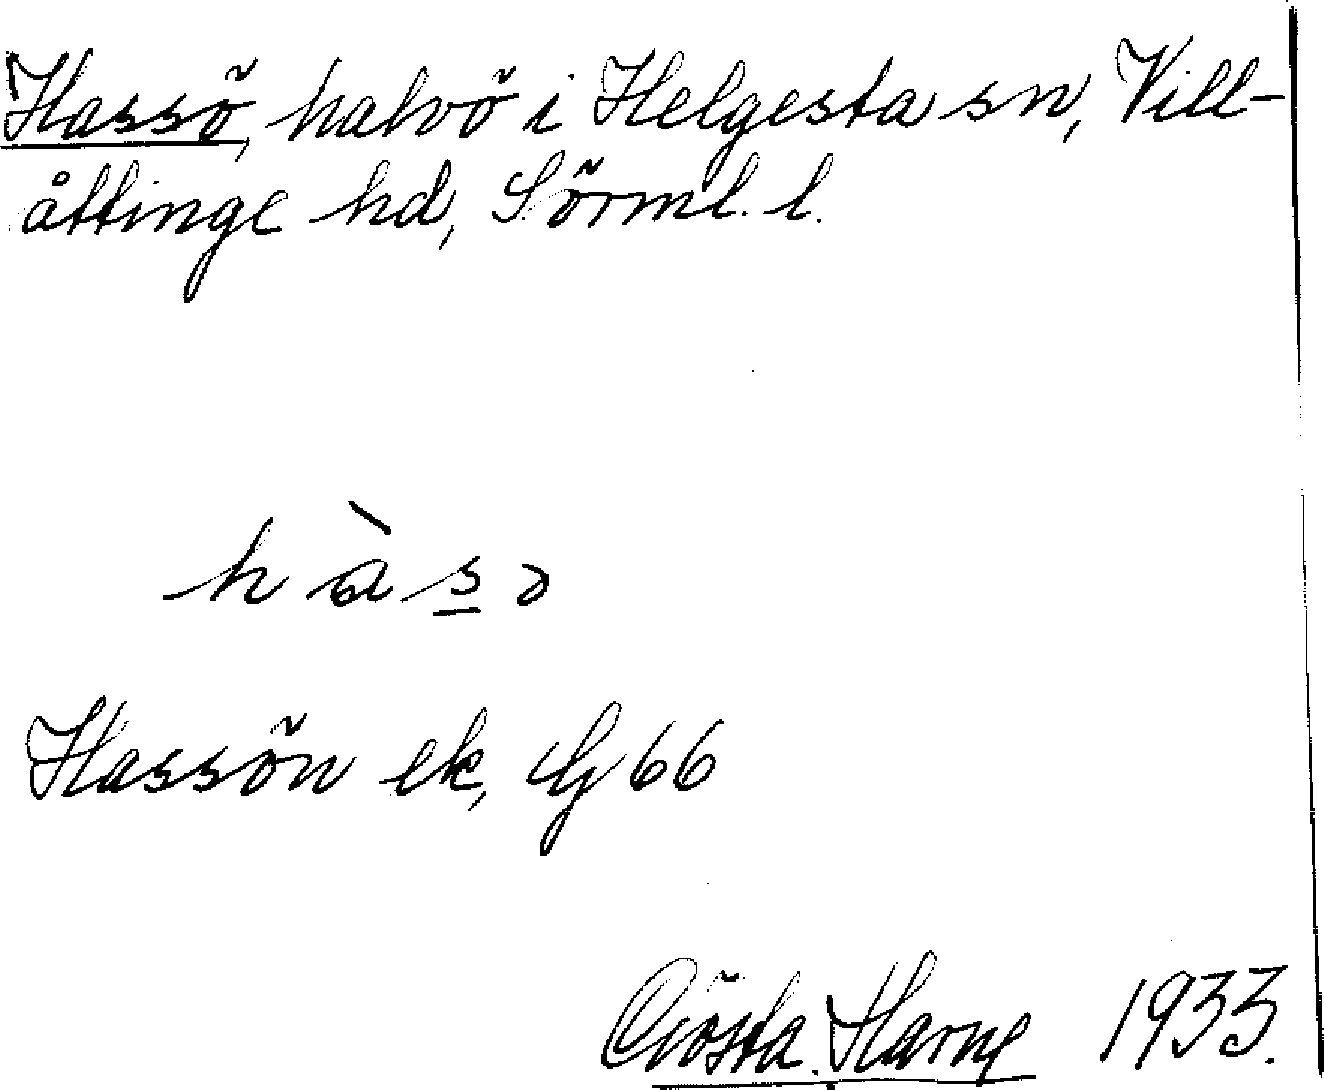 Hassö, halvö i Helgesta sn, Vill-
åttinge hd, Sörml. l.
h à s ə
Hassön ek, Lj 66
Gösta Harne 1933.